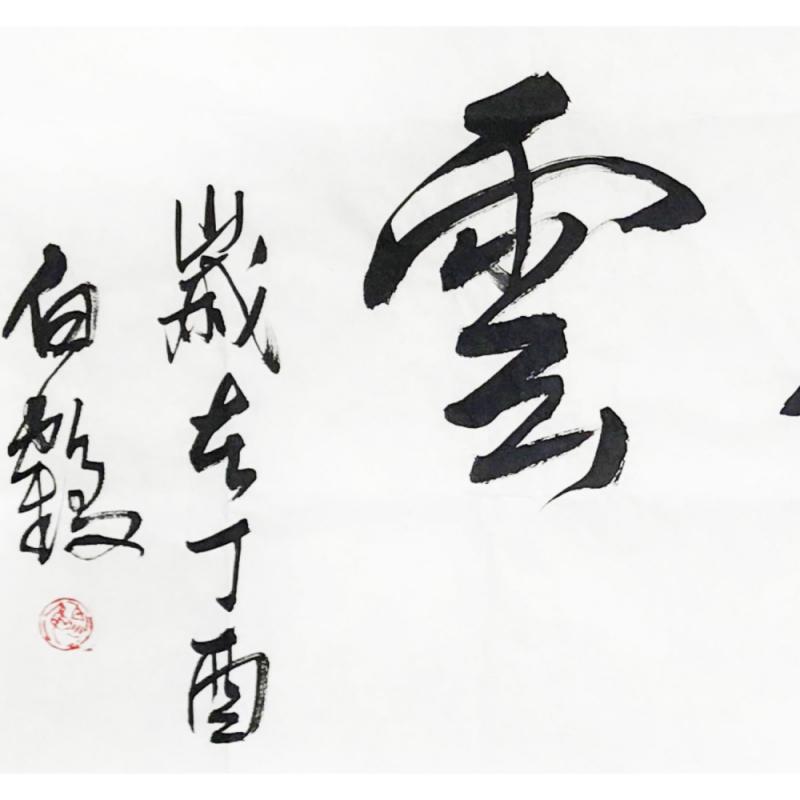 雲
歲在丁酉
白穀